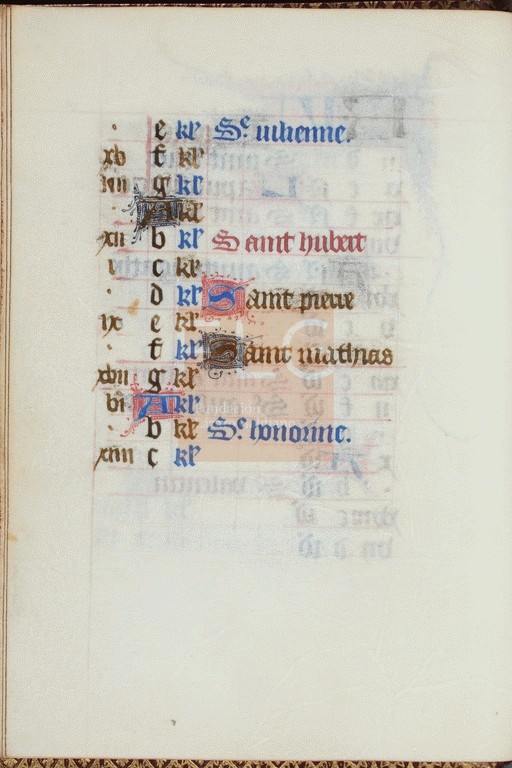 . e kl' Ste iulienne.
xv f kl'
iiii g kl'
A kl'
xii b kl' Saint hubert
i c kl'
. d kl' Saint pierre
ix e kl'
. f kl' Saint mathias
xvii g kl'
vi A kl'
. b kl' Ste honorine.
xiiii c kl'